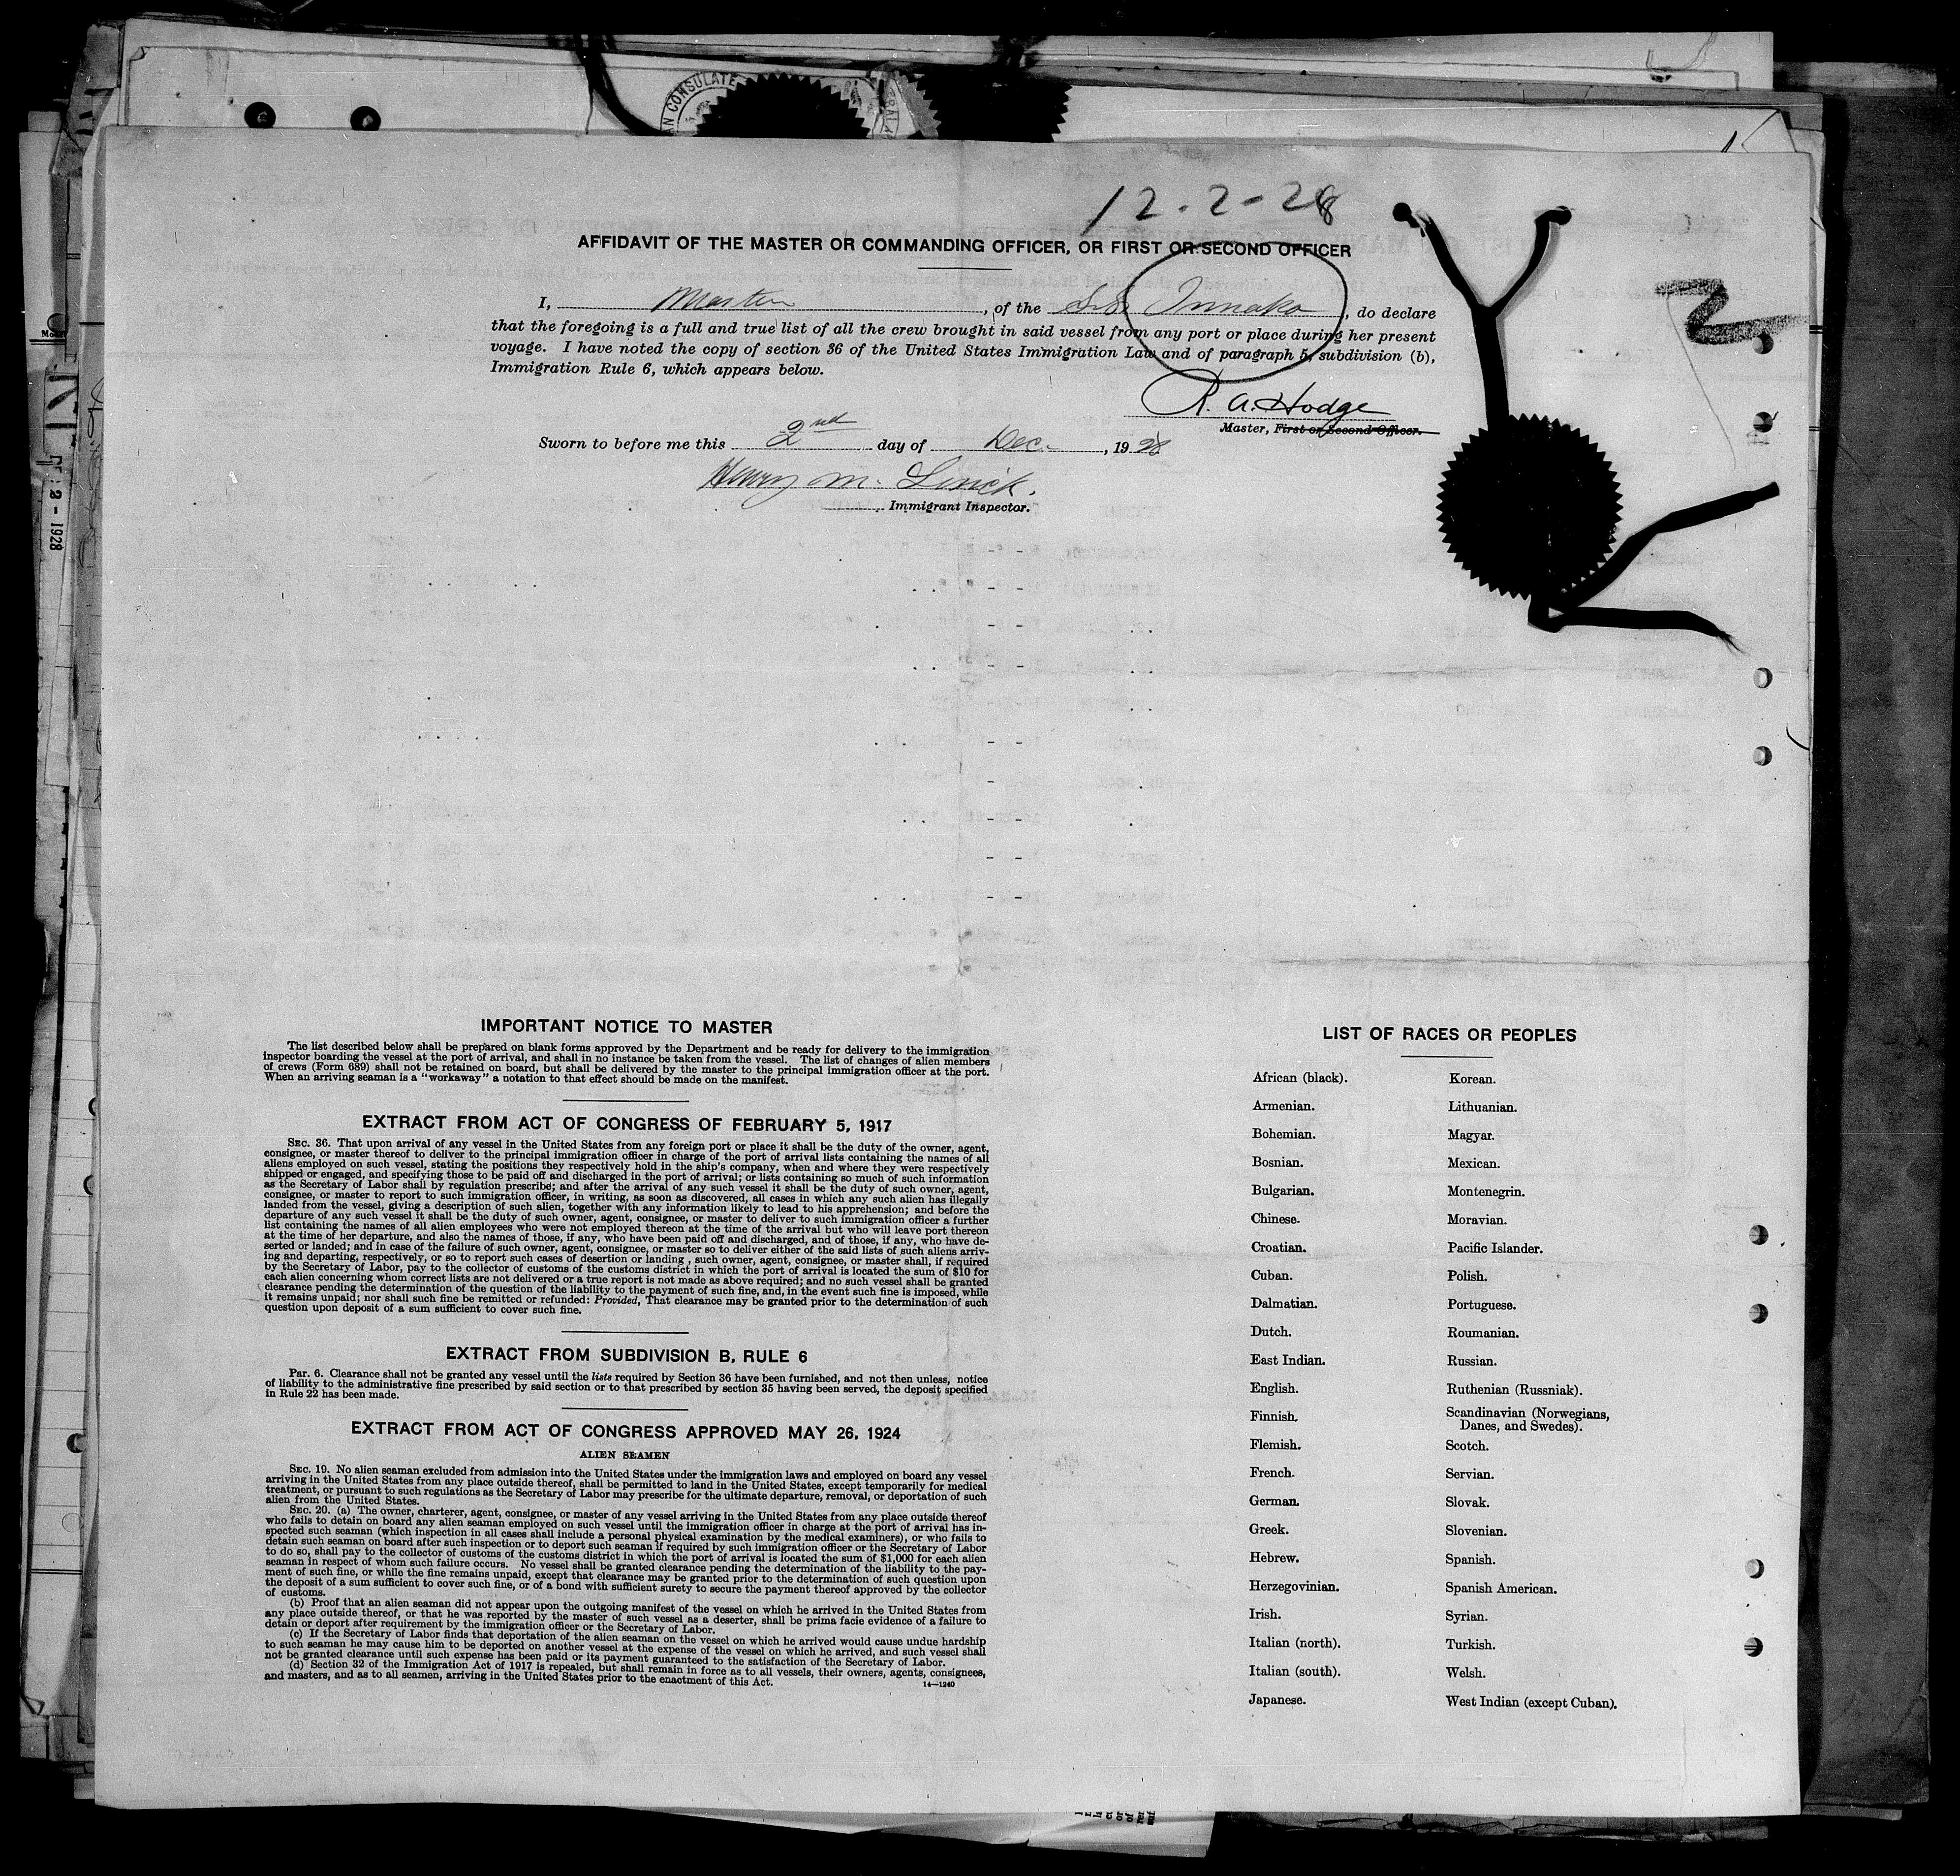 AN CONSULATE
12-2-28
AFFIDAVIT OF THE MASTER OR COMMANDING OFFICER, OR FIRST OR SECOND OFFICER
2
I, Master, of the S.S. , do declare
that the foregoing is a full and true list of all the crew brought in said vessel from any port or place during her present
voyage. I have noted the copy of section 36 of the United States Immigration Law and of paragraph 5, subdivision (b),
Immigration Rule 6, which appears below.
R. A. Hodge
Master, First or Second Officer.
Sworn to before me this 2nd day of Dec., 1928
Henry M.
Immigrant Inspector.
2 - 1928
IMPORTANT NOTICE TO MASTER
The list described below shall be prepared on blank forms approved by the Department and be ready for delivery to the immigration
inspector boarding the vessel at the port of arrival, and shall in no instance be taken from the vessel. The list of changes of alien members
of crews (Form 689) shall not be retained on board, but shall be delivered by the master to the principal immigration officer at the port.
When an arriving seaman is a "workaway" a notation to that effect should be made on the manifest.
EXTRACT FROM ACT OF CONGRESS OF FEBRUARY 5, 1917
SEC. 36. That upon arrival of any vessel in the United States from any foreign port or place it shall be the duty of the owner, agent,
consignee, or master thereof to deliver to the principal immigration officer in charge of the port of arrival lists containing the names of all
aliens employed on such vessel, stating the positions they respectively hold in the ship's company, when and where they were respectively
shipped or engaged, and specifying those to be paid off and discharged in the port of arrival; or lists containing so much of such information
as the Secretary of Labor shall by regulation prescribe; and after the arrival of any such vessel it shall be the duty of such owner, agent,
consignee, or master to report to such immigration officer, in writing, as soon as discovered, all cases in which any such alien has illegally
landed from the vessel, giving a description of such alien, together with any information likely to lead to his apprehension; and before the
departure of any such vessel it shall be the duty of such owner, agent, consignee, or master to deliver to such immigration officer a further
list containing the names of all alien employees who were not employed thereon at the time of the arrival but who will leave port thereon
at the time of her departure, and also the names of those, if any, who have been paid off and discharged, and of those, if any, who have de-
serted or landed; and in case of the failure of such owner, agent, consignee, or master so to deliver either of the said lists of such aliens arriv-
ing and departing, respectively, or so to report such cases of desertion or landing , such owner, agent, consignee, or master shall, if required
by the Secretary of Labor, pay to the collector of customs of the customs district in which the port of arrival is located the sum of $10 for
each alien concerning whom correct lists are not delivered or a true report is not made as above required; and no such vessel shall be granted
clearance pending the determination of the question of the liability to the payment of such fine, and, in the event such fine is imposed, while
it remains unpaid; nor shall such fine be remitted or refunded: Provided, That clearance may be granted prior to the determination of such
question upon deposit of a sum sufficient to cover such fine.
EXTRACT FROM SUBDIVISION B, RULE 6
Par. 6. Clearance shall not be granted any vessel until the lists required by Section 36 have been furnished, and not then unless, notice
of liability to the administrative fine prescribed by said section or to that prescribed by section 35 having been served, the deposit specified
in Rule 22 has been made.
EXTRACT FROM ACT OF CONGRESS APPROVED MAY 26, 1924
ALIEN SEAMEN
SEC. 19. No alien seaman excluded from admission into the United States under the immigration laws and employed on board any vessel
arriving in the United States from any place outside thereof, shall be permitted to land in the United States, except temporarily for medical
treatment, or pursuant to such regulations as the Secretary of Labor may prescribe for the ultimate departure, removal, or deportation of such
alien from the United States.
SEC. 20. (a) The owner, charterer, agent, consignee, or master of any vessel arriving in the United States from any place outside thereof
who fails to detain on board any alien seaman employed on such vessel until the immigration officer in charge at the port of arrival has in-
spected such seaman (which inspection in all cases shall include a personal physical examination by the medical examiners), or who fails to
detain such seaman on board after such inspection or to deport such seaman if required by such immigration officer or the Secretary of Labor
to do so, shall pay to the collector of customs of the customs district in which the port of arrival is located the sum of $1,000 for each alien
seaman in respect of whom such failure occurs. No vessel shall be granted clearance pending the determination of the liability to the pay-
ment of such fine, or while the fine remains unpaid, except that clearance may be granted prior to the determination of such question upon
the deposit of a sum sufficient to cover such fine, or of a bond with sufficient surety to secure the payment thereof approved by the collector
of customs.
(b) Proof that an alien seaman did not appear upon the outgoing manifest of the vessel on which he arrived in the United States from
any place outside thereof, or that he was reported by the master of such vessel as a deserter, shall be prima facie evidence of a failure to
detain or deport after requirement by the immigration officer or the Secretary of Labor.
(c) If the Secretary of Labor finds that deportation of the alien seaman on the vessel on which he arrived would cause undue hardship
to such seaman he may cause him to be deported on another vessel at the expense of the vessel on which he arrived, and such vessel shall
not be granted clearance until such expense has been paid or its payment guaranteed to the satisfaction of the Secretary of Labor.
(d) Section 32 of the Immigration Act of 1917 is repealed, but shall remain in force as to all vessels, their owners, agents, consignees,
and masters, and as to all seamen, arriving in the United States prior to the enactment of this Act.
14—1240
LIST OF RACES OR PEOPLES
African (black).
Armenian.
Bohemian.
Bosnian.
Bulgarian.
Chinese.
Croatian.
Cuban.
Dalmatian.
Dutch.
East Indian.
English.
Finnish.
Flemish.
French.
German.
Greek.
Hebrew.
Herzegovinian.
Irish.
Italian (north).
Italian (south).
Japanese.
Korean.
Lithuanian.
Magyar.
Mexican.
Montenegrin.
Moravian.
Pacific Islander.
Polish.
Portuguese.
Roumanian.
Russian.
Ruthenian (Russniak).
Scandinavian (Norwegians,
Danes, and Swedes).
Scotch.
Servian.
Slovak.
Slovenian.
Spanish.
Spanish American.
Syrian.
Turkish.
Welsh.
West Indian (except Cuban).